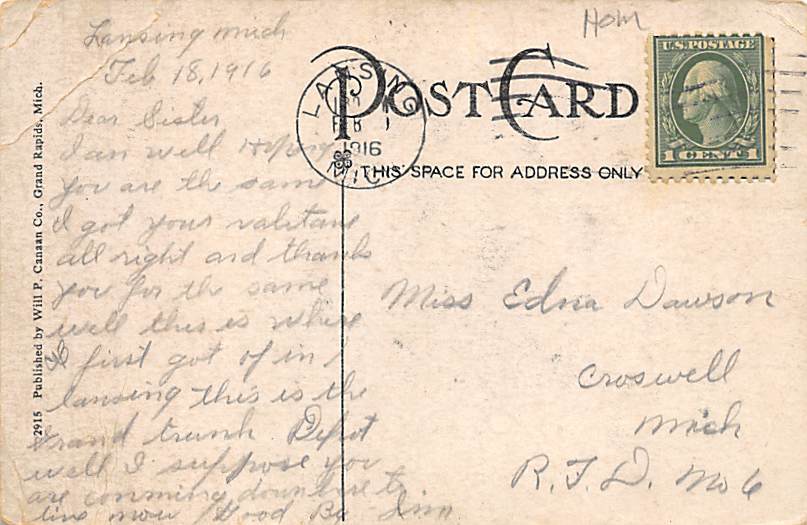 Hom
Lansing Mich
Feb 18, 1916
Dear Sister
I am well Hoping
you are the same
I got your valetane
all right and thanks
you for the same
well this is where
I first got of in
lansing this is the
Grand trunk Depot
well I suppose you
are comming down here to
live now Good By Jim
POST CARD
THIS SPACE FOR ADDRESS ONLY
LANSING
FEB
1916
MICH
U.S. POSTAGE
1 CENT 1
Miss Edna Dawson
Croswell
Mich
R.F.D. No 6
2915 Published by Will P. Canaan Co., Grand Rapids, Mich.